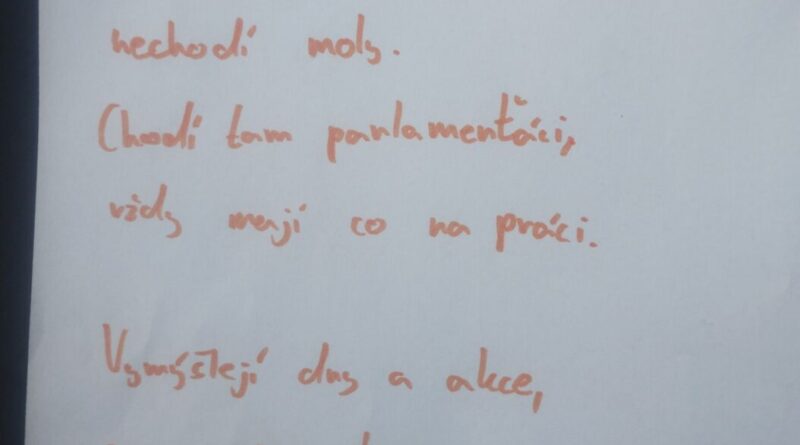 nechodí moly.
Chodí tam parlamenťáci,
vždy mají co na práci.
Vymýšlejí dny a akce,